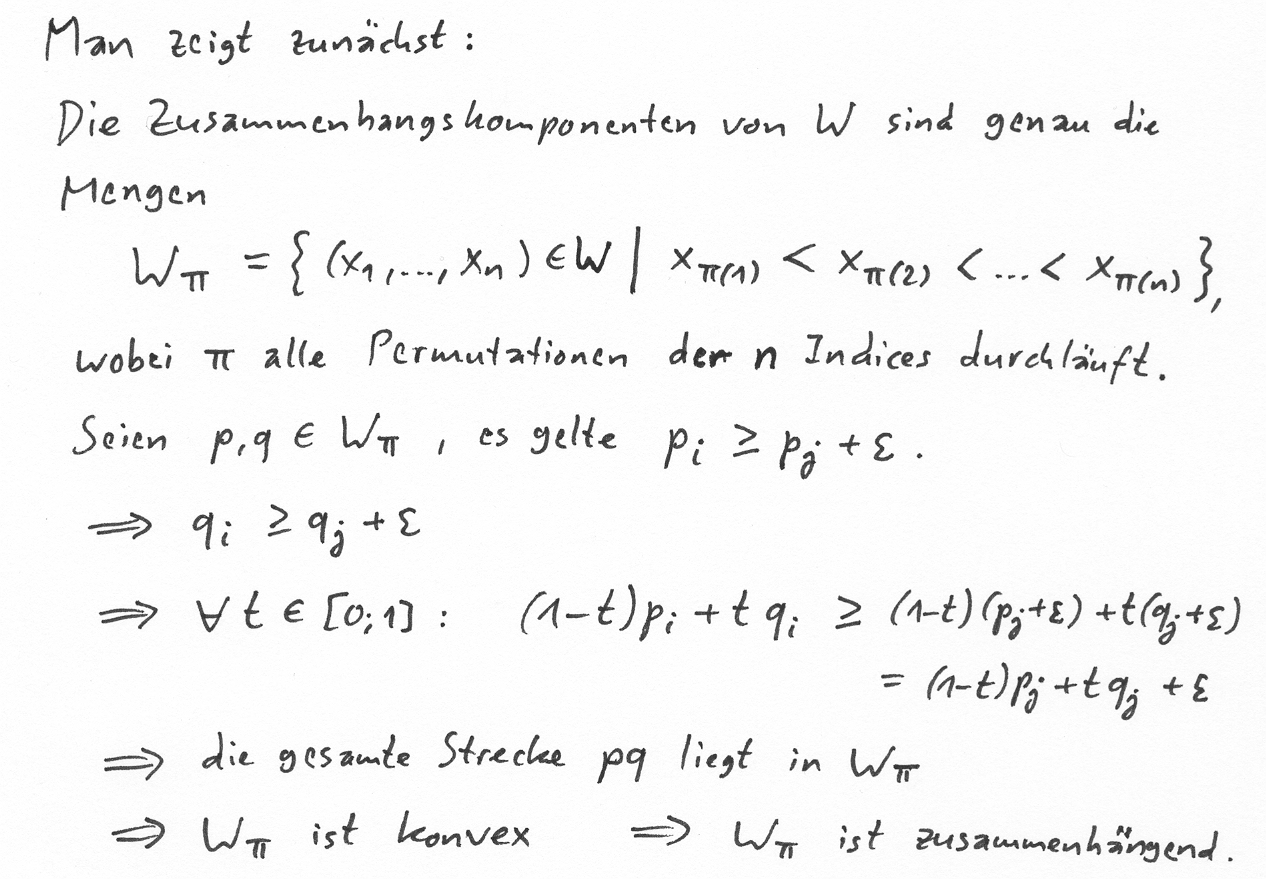 Man zeigt zunächst:
Die Zusammenhangskomponenten von W sind genau die
Mengen
W_π = { (x₁,..., xₙ) ∈ W | x_π(1) < x_π(2) < ... < x_π(n) },
wobei π alle Permutationen der n Indices durchläuft.
Seien p,q ∈ W_π , es gelte p_i ≥ p_j + ε.
⟹ q_i ≥ q_j + ε
⟹ ∀ t ∈ [0;1] : (1-t)p_i + t q_i ≥ (1-t)(p_j+ε) + t(q_j+ε)
= (1-t)p_j + t q_j + ε
⟹ die gesamte Strecke pq liegt in W_π
⟹ W_π ist konvex ⟹ W_π ist zusammenhängend.